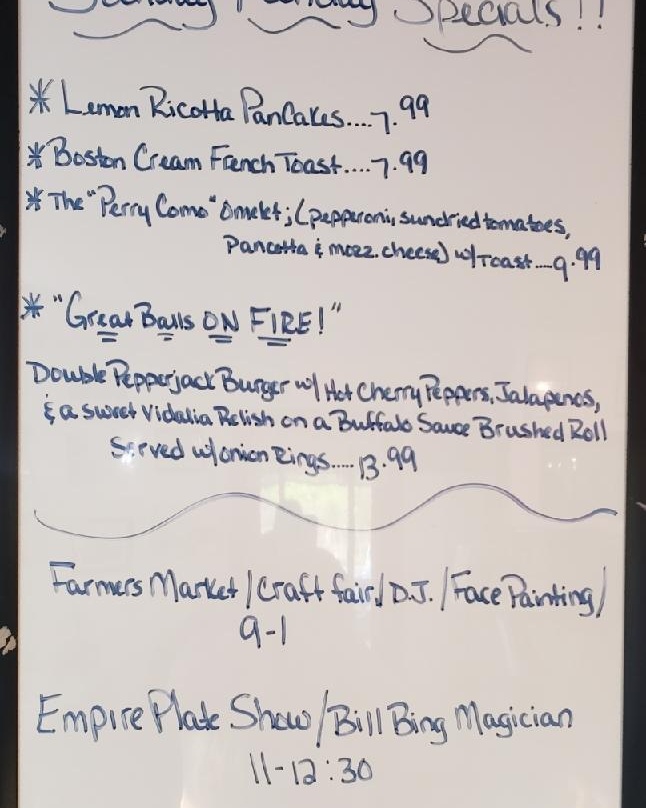 Sunday Funday Specials!!
* Lemon Ricotta PanCakes....7.99
* Boston Cream French Toast....7.99
* The "Perry Como" Omelet; (pepperoni, sundried tomatoes,
Pancetta & mozz. cheese) w/ Toast....9.99
* "Great Balls ON FIRE!"
Double Pepperjack Burger w/ Hot Cherry Peppers, Jalapenos,
& a sweet Vidalia Relish on a Buffalo Sauce Brushed Roll
Served w/ onion Rings.....13.99
Farmers Market/Craft fair/D.J./Face Painting/
9-1
Empire Plate Show/Bill Bing Magician
11-12:30